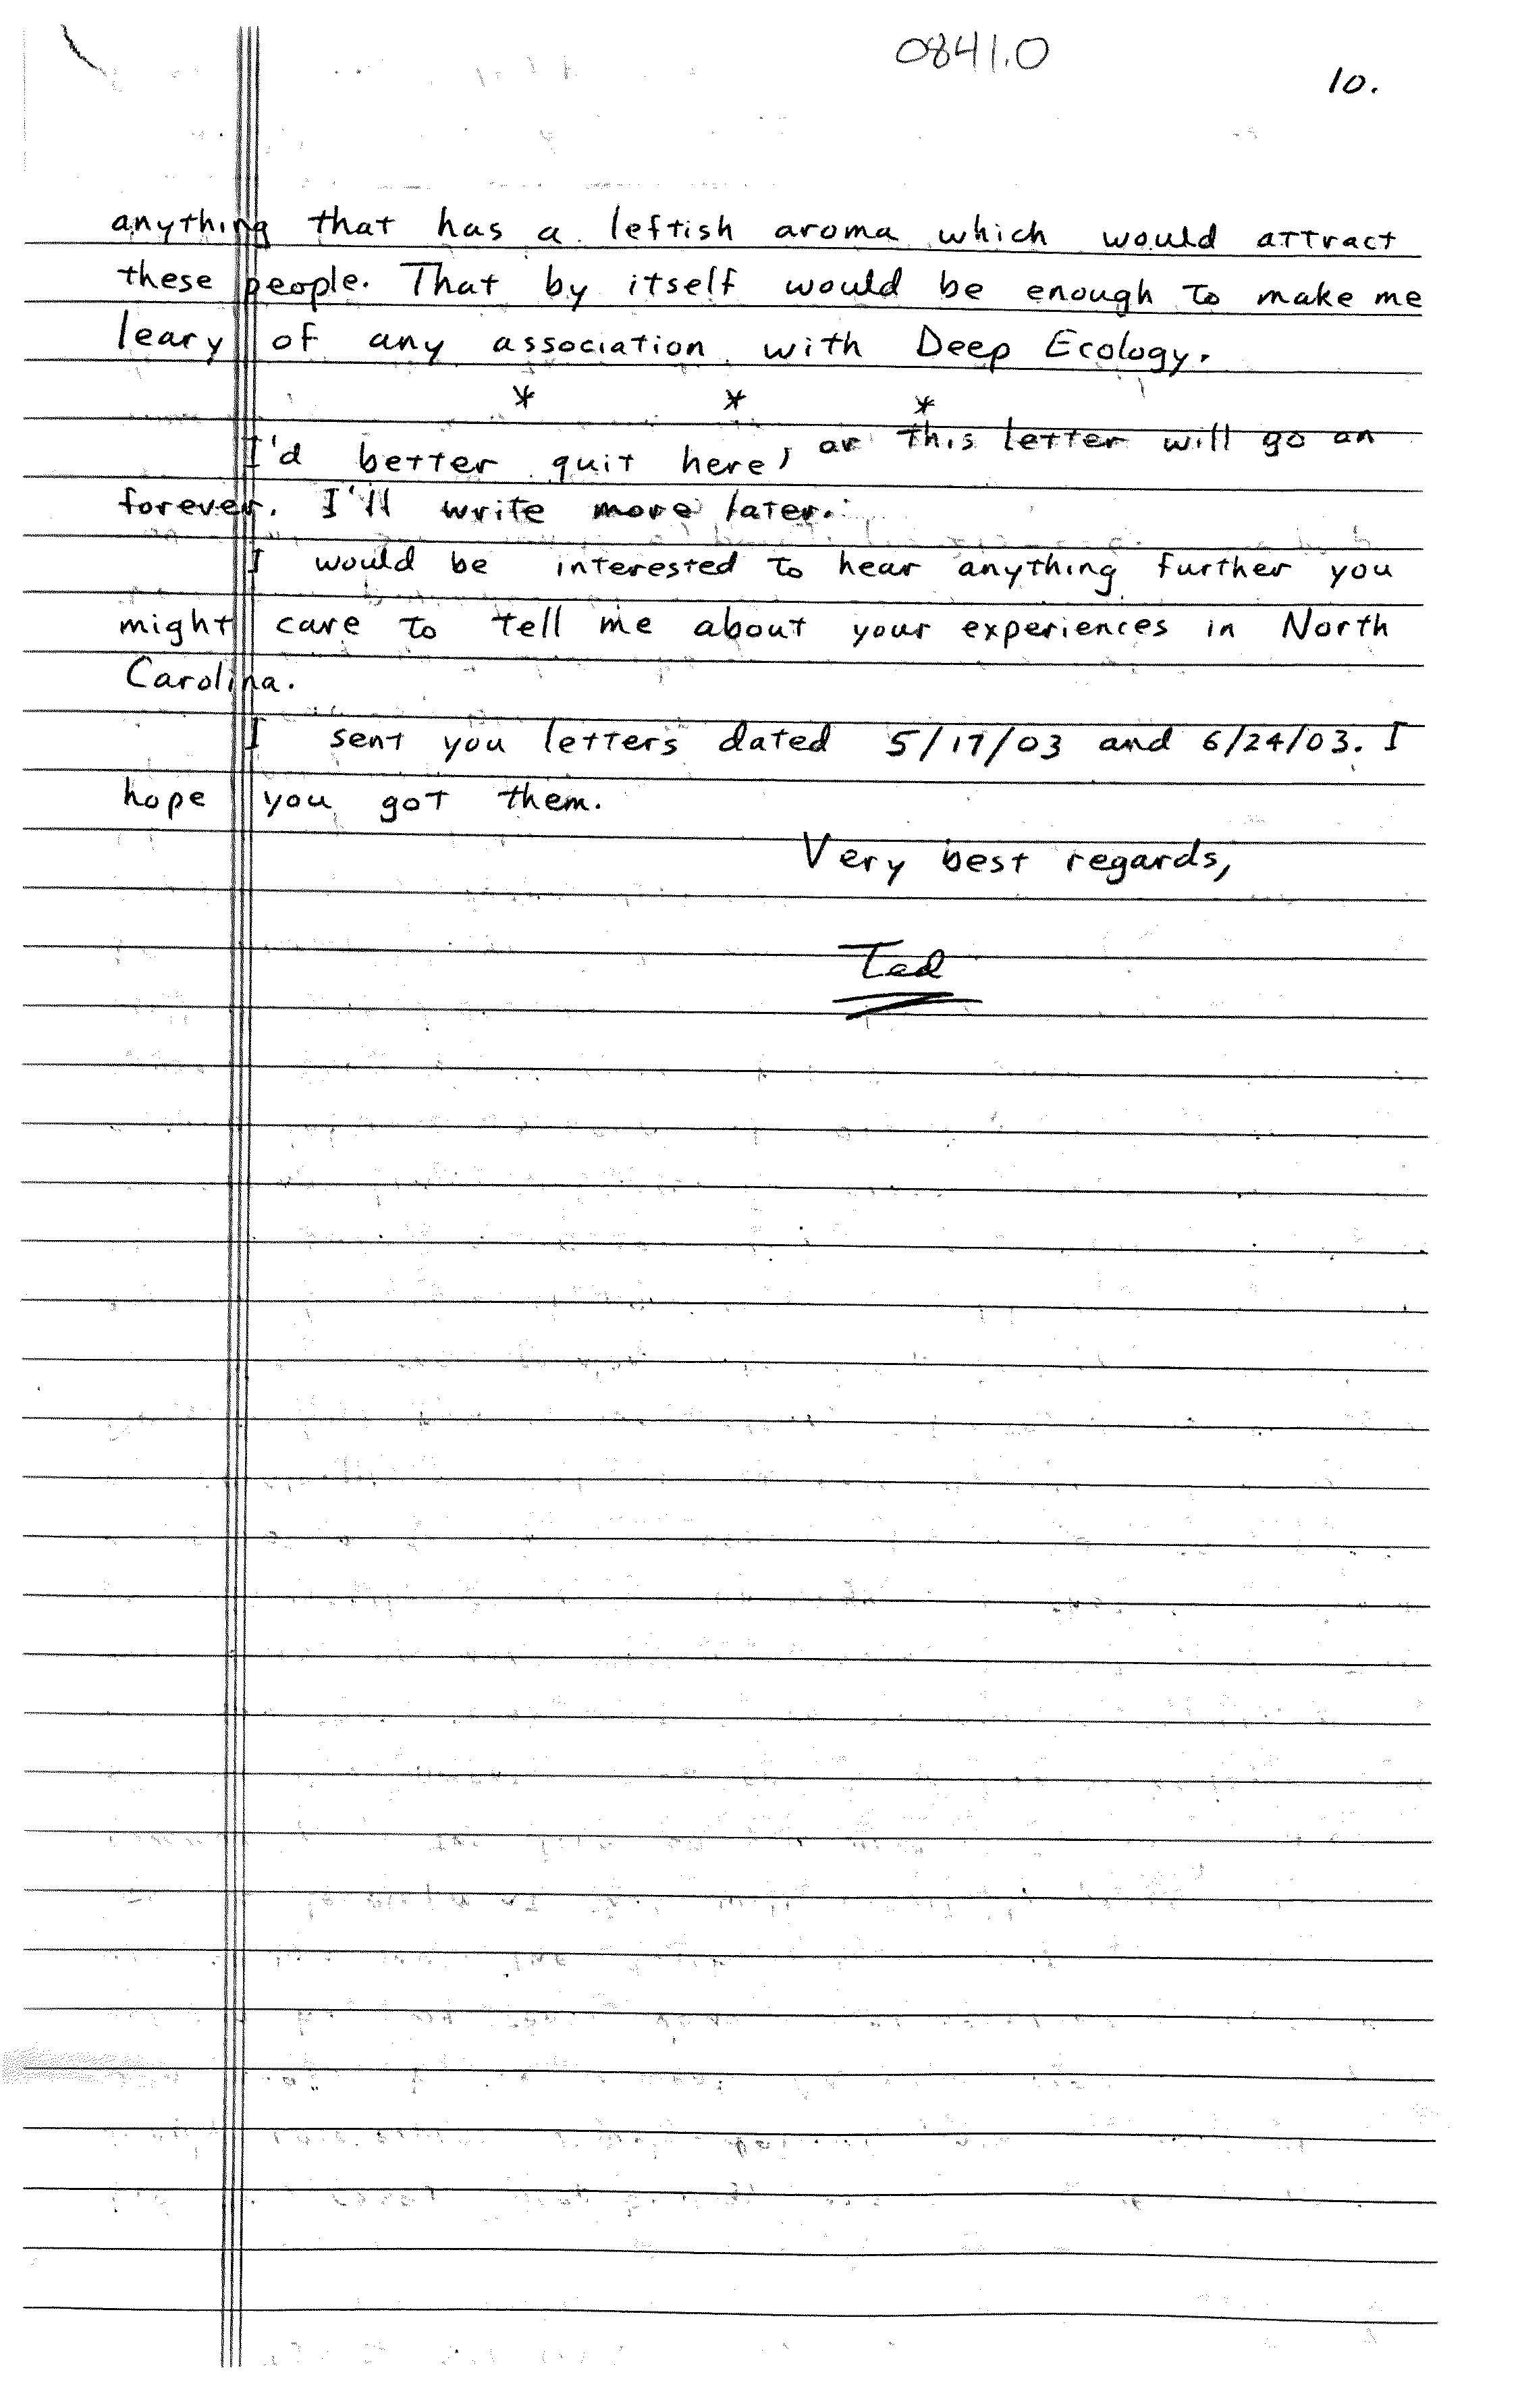 0841.0
10.
anything that has a leftish aroma which would attract
these people. That by itself would be enough to make me
leary of any association with Deep Ecology.
* * *
I'd better quit here, or this letter will go on
forever. I'll write more later.
I would be interested to hear anything further you
might care to tell me about your experiences in North
Carolina.
I sent you letters dated 5/17/03 and 6/24/03. I
hope you got them.
Very best regards,
Ted